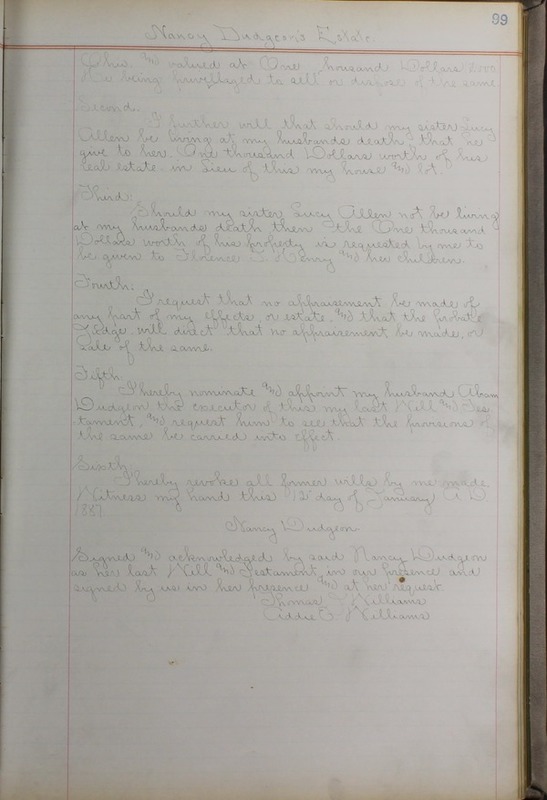 99
Nancy Dudgeon's Estate.
Ohio and valued at One Thousand Dollars
He being priviledged to sell or dispose of the same
Second.
I further will that should my sister Lucy
Allen be living at my husbands death, that he
give to her One thousand Dollars worth of his
real estate in Lieu of this my house and lot.
Third:
Should my sister Lucy Allen not be living
at my husbands death then the One thousand
Dollars worth of his property is requested by me to
be given to Florence Henry and her children.
Fourth:
I request that no appraisement be made of
any part of my effects, or estate, and that the probate
Judge will direct that no appraisement be made, or
sale of the same.
Fifth.
I hereby nominate and appoint my husband Abram
Dudgeon the executor of this my last Will and Tes
tament, and request him to see that the provisions of
the same be carried into effect.
Sixth
I hereby revoke all former wills by me made.
Witness my hand this 12" day of January A D
1887
Nancy Dudgeon
Signed and acknowledged by said Nancy Dudgeon
as her last Will and Testament, in our presence and
signed by us in her presence and at her request
Thomas Williams
Addie Williams